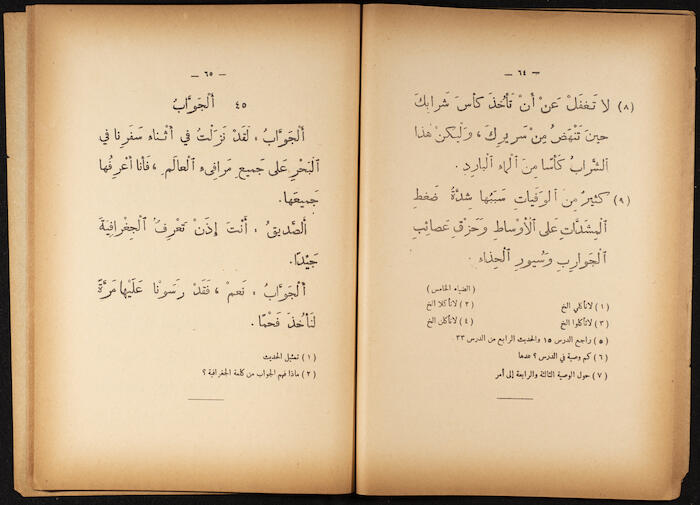 — ٦٤ —
(٨) لا تَغفَلْ عَنْ أنْ تَأخُذَ كأسَ شَرابِكَ
حينَ تَنْهَضُ مِنْ سَريرِكَ، وَلْيكنْ هٰذا
الشَّرابُ كَأسًا مِنَ الْماءِ الْبارِدِ.
(٩) كثيرٌ مِنَ الوَفَياتِ سَببُها شِدَّةُ ضَغطِ
الْمِشدَّاتِ عَلى الْأوْساطِ وَحَزْقِ عَصائِبِ
الْجَوارِبِ وَسُيورِ الْحِذاءِ.
(الضياء الخامس)
(١) لاتأكلي الخ (٢) لاتأكلا الخ
(٣) لاتأكلوا الخ (٤) لاتأكلن الخ
(٥) راجع الدرس ١٥ والحديث الرابع من الدرس ٣٣
(٦) كم وصية في الدرس؟ عدها
(٧) حول الوصية الثالثة والرابعة إلى أمر
— ٦٥ —
٤٥ اَلْجَوَّابُ
اَلْجَوَّابُ: لَقَدْ نَزَلْتُ في أثْناءِ سَفَرِنا في
الْبَحْرِ عَلى جَميعِ مَرافِىءِ الْعالَمِ، فَأنا أعْرِفُها
جَميعَها.
اَلصَّديقُ: أنْتَ إذَنْ تَعْرِفُ الْجِغْرافِيَةَ
جَيِّدًا.
اَلْجَوَّابُ: نَعمْ، فقَدْ رَسَوْنا عَلَيْها مَرَّةً
لِنَأخُذَ فَحْمًا.
(١) تمثيل الحديث
(٢) ماذا فهم الجواب من كلمة الجغرافية؟